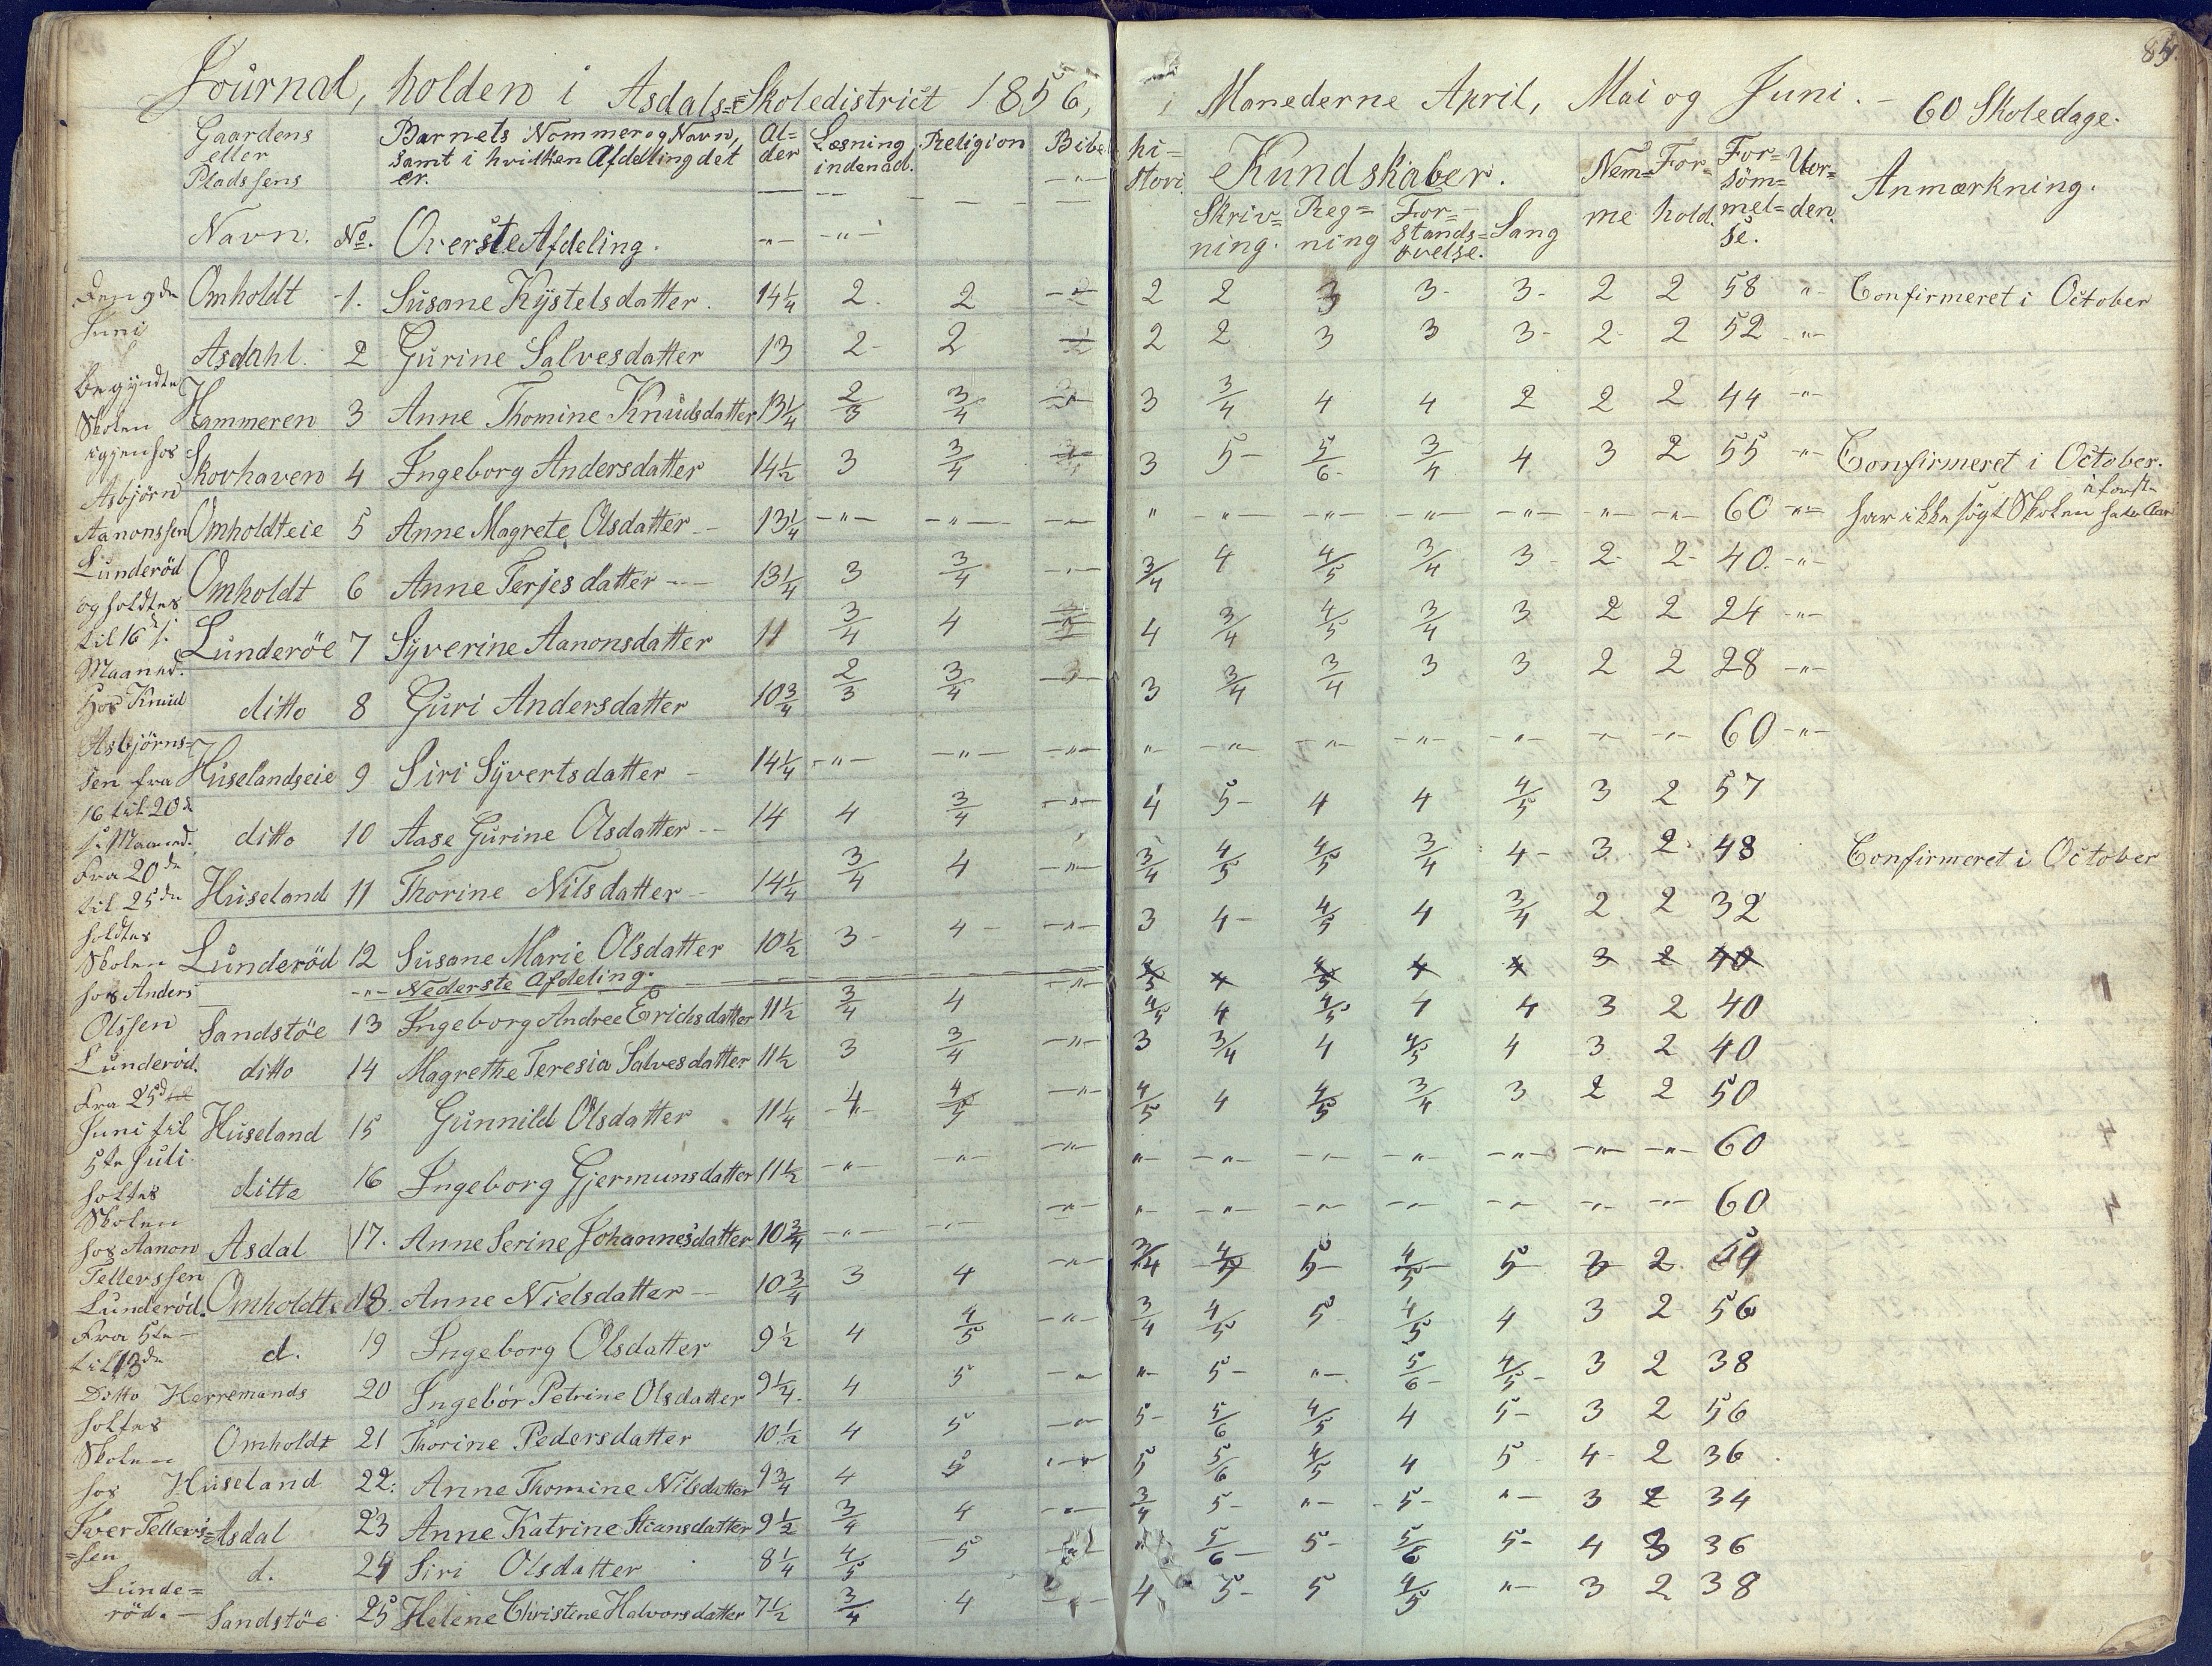 85.
Journal, holden i Asdals=Skoledistrict 1856, i Manederne April, Mai og Juni. - 60 Skoledage.
Gaardens eller Pladssens Navn. No. Barnets Nommer og Navn, samt i hvilken Afdeling det er. Al=der Læsning indenad. Religion Bibel hi=stori Kundskaber. Nem=me For=hold. For=söm=mel=se. Uor=den. Anmærkning.
Overste Afdeling. Skriv=ning. Reg=ning For=stands=övelse. Sang
Omholdt 1. Susane Kystelsdatter. 14 1/4 2. 2 2 2 3 3- 3- 2 2 58 -"- Confirmeret i October
Asdahl. 2 Gurine Salvesdatter 13 2- 2 2 2 3 3 3- 2- 2 52 -"-
Hammeren 3 Anne Thomine Knudsdatter 13 1/4 2/3 3/4 3 3/4 4 4 2 2 2 44 -"-
Skovhaven 4 Ingeborg Andersdatter 14 1/2 3 3/4 3 5- 5/6 3/4 4 3 2 55 -"- Confirmeret i October.
Omholdteie 5 Anne Magrete Olsdatter- 13 1/4 -"- -"- -"- " -"- -"- -"- -"- -"- -"- 60 -"- har ikke sögt Skolen
Omholdt 6 Anne Terjesdatter 13 1/4 3 3/4 -"- 3/4 4 4/5 3/4 3- 2- 2- 40. -"-
Lunderöe 7 Syverine Aanonsdatter 11 3/4 4 4 3/4 4/5 3/4 3 2 2 24 -"-
ditto 8 Guri Andersdatter 10 3/4 2/3 3/4 3 3/4 3/4 3 3 2 2 28 -"-
Huselandseie 9 Siri Syvertsdatter - 14 1/4 -"- -"- -"- " -"- -"- -"- -"- -"- -"- 60 -"-
ditto 10 Aase Gurine Olsdatter -- 14 4 3/4 -"- 4 5- 4 4 4/5 3 2 57
Huseland 11 Thorine Nilsdatter- 14 1/4 3/4 4 -"- 3/4 4/5 4/5 3/4 4- 3 2 48 Confirmeret i October
Lunderöd 12 Susane Marie Olsdatter 10 1/2 3- 4- -"- 3 4- 4/5 4 3/4 2 2 32
-"- Nederste Afdeling. -"- 4/5 4 4/5 4 4 3 2 40
Sandstöe 13 Ingeborg Andree Erichsdatter 11 1/2 3/4 4 4/5 4 4/5 4 4 3 2 40
ditto 14 Magrethe Teresia Salvesdatter 11 1/2 3 3/4 -"- 3 3/4 4 4/5 4 3 2 40
Huseland 15 Gunnild Olsdatter 11 1/4 4 4/5 -"- 4/5 4 4/5 3/4 3 2 2 50
ditto 16 Ingeborg Gjermunsdatter 11 1/2 -"- -"- -"- -"- -"- -"- -"- -"- -"- -"- 60
Asdal 17. Anne Serine Johannesdatter 10 3/4 -"- -"- -"- -"- -"- -"- -"- -"- -"- -"- 60
Omholdte 18. Anne Nielsdatter -- 10 3/4 3 4 -"- 3/4 4/5 5- 4/5 5 3 2
d. 19 Ingeborg Olsdatter 9 1/2 4 4/5 -"- 3/4 4/5 5 4/5 4 3 2 56
Herremands 20 Ingebor Petrine Olsdatter 9 1/4. 4 5 -"- "- 5- "- 5/6- 4/5- 3 2 38
Omholdt 21 Thorine Pedersdatter 10 1/2 4 5 -"- 5- 5/6 4/5 4 5- 3 2 56
Huseland 22. Anne Thomine Nilsdatter 9 3/4 4 5 -"- 5 5/6 4/5 4 5 4- 2 36
Asdal 23 Anne Katrine Stiansdatter 9 1/2 3/4 4 -"- 3/4 5- "- 5- "- 3 2 34
d. 24 Siri Olsdatter 8 1/4 4/5 5 " 5/6- 5- 5/6 5- 4 3 36
Sandstöe 25 Helene Christene Halvorsdatter 7 1/2 3/4 4 4 5- 5 4/5 "- 3 2 38
Den 9de
Juni
begyndte
Skolen
igjen hos
Asbjörn
Aanonssen
Lunderöd
og holdtes
til 16de
Maaned.
Hos Knud
Asbjörns=
sen fra
16 til 20de
s. Maaned.
Fra 20de
til 25de
holdtes
Skolen
hos Anders
Olssen
Lunderöd.
Fra 25de
Juni til
5te Juli
holtes
Skolen
hos Aanon
Tellevssen
Lunderöd.
Fra 5te-
til 13de
Ditto
holtes
Skolen
hos
Iver Tellevs=
=sen
Lunde=
röd. -